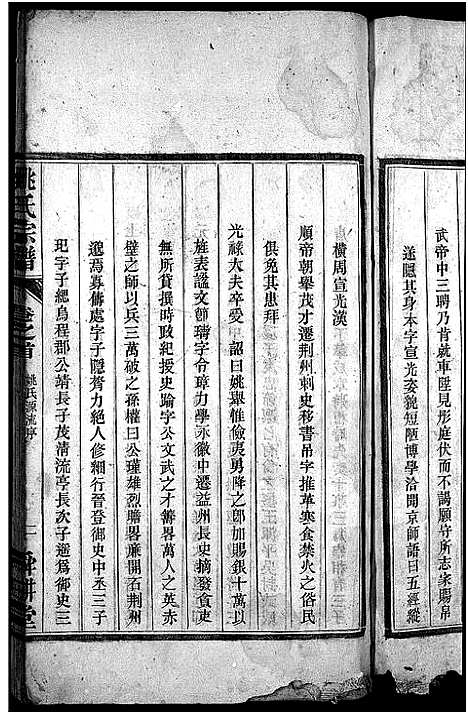 武帝中三聘乃肯就車陛見彤庭伏而不謁願守所志家賜帛
遂隱其身本字宣光姿貌短陋博學洽聞京師語曰五經縱
橫周宣光漢
順帝朝舉茂才遷荆州刺史移書吊字推革寒食禁火之俗民
俱免其患拜
光祿大夫卒受 詔曰姚舉惟儉夷勇降之郎加賜銀十萬以
旌表謚文節璹字令璋力學永徽中遷益州長史摘發貪吏
無所貸撰時政紀授史踰字公文武之才籌畧萬人之英赤
壁之師以兵三萬破之孫權曰公瑾雄烈膽畧廉開石荆州
邈焉寡儔處字子隱膂力絕人修細行晉登御史中丞三子
玘字子緦烏程郡公靖長子茂清流亭長次子遜爲御史三
姚氏宗譜
卷之首
姚氏源流序
一
舜耕堂